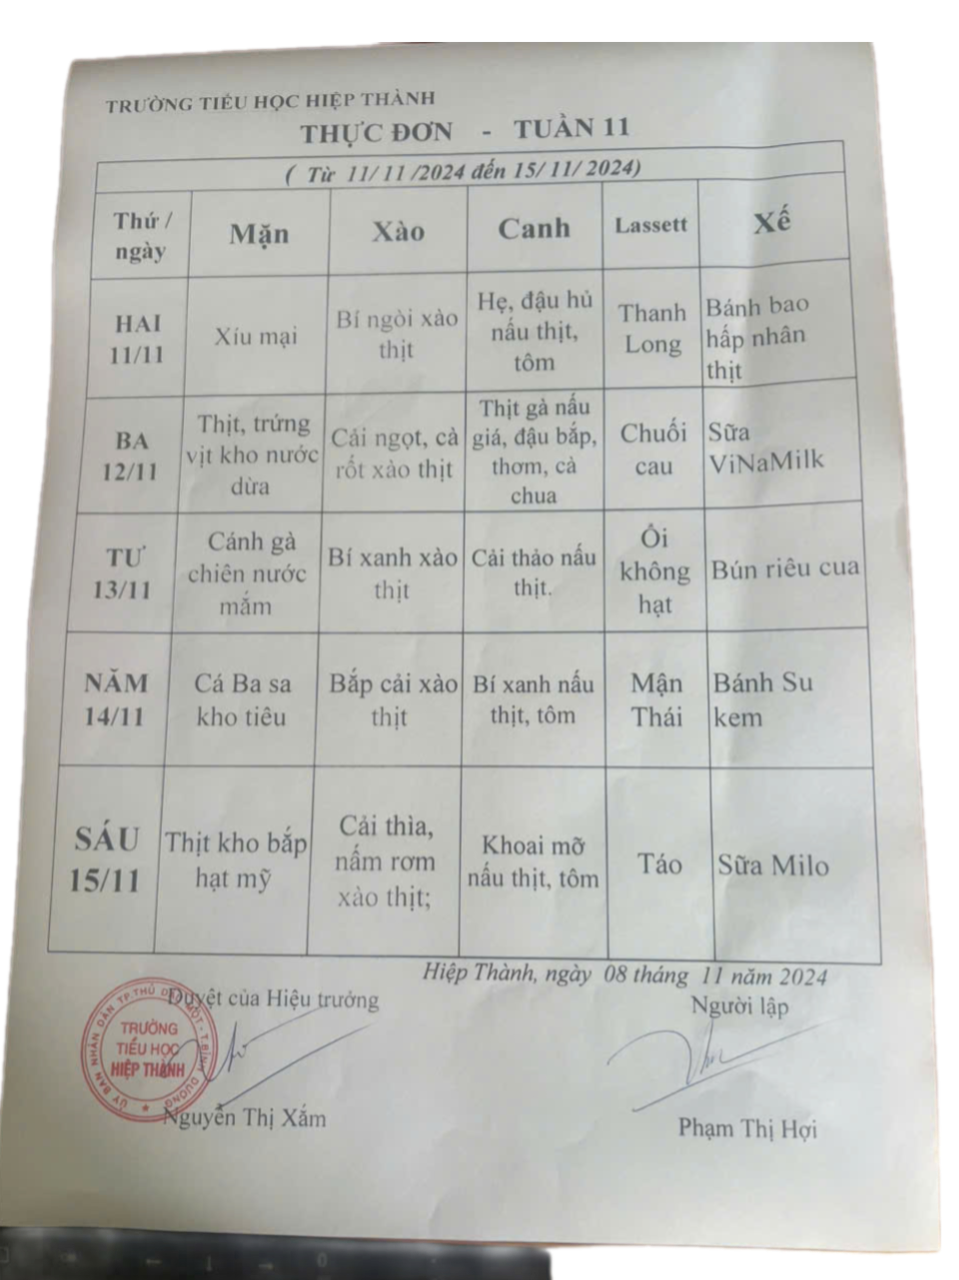 TRƯỜNG TIỂU HỌC HIỆP THÀNH
THỰC ĐƠN - TUẦN 11
( Từ 11/ 11 /2024 đến 15/ 11/ 2024)
Thứ /
ngày
Mặn
Xào
Canh
Lassett
Xế
HAI
11/11
Xíu mại
Bí ngòi xào
thịt
Hẹ, đậu hủ
nấu thịt,
tôm
Thanh
Long
Bánh bao
hấp nhân
thịt
BA
12/11
Thịt, trứng
vịt kho nước
dừa
Cải ngọt, cà
rốt xào thịt
Thịt gà nấu
giá, đậu bắp,
thơm, cà
chua
Chuối
cau
Sữa
ViNaMilk
TƯ
13/11
Cánh gà
chiên nước
mắm
Bí xanh xào
thịt
Cải thảo nấu
thịt.
Ổi
không
hạt
Bún riêu cua
NĂM
14/11
Cá Ba sa
kho tiêu
Bắp cải xào
thịt
Bí xanh nấu
thịt, tôm
Mận
Thái
Bánh Su
kem
SÁU
15/11
Thịt kho bắp
hạt mỹ
Cải thìa,
nấm rơm
xào thịt;
Khoai mỡ
nấu thịt, tôm
Táo
Sữa Milo
Hiệp Thành, ngày 08 tháng 11 năm 2024
Duyệt của Hiệu trưởng
Người lập
ỦY BAN NHÂN DÂN TP.THỦ DẦU MỘT - T.BÌNH DƯƠNG
TRƯỜNG
TIỂU HỌC
HIỆP THÀNH
Nguyễn Thị Xắm
Phạm Thị Hợi